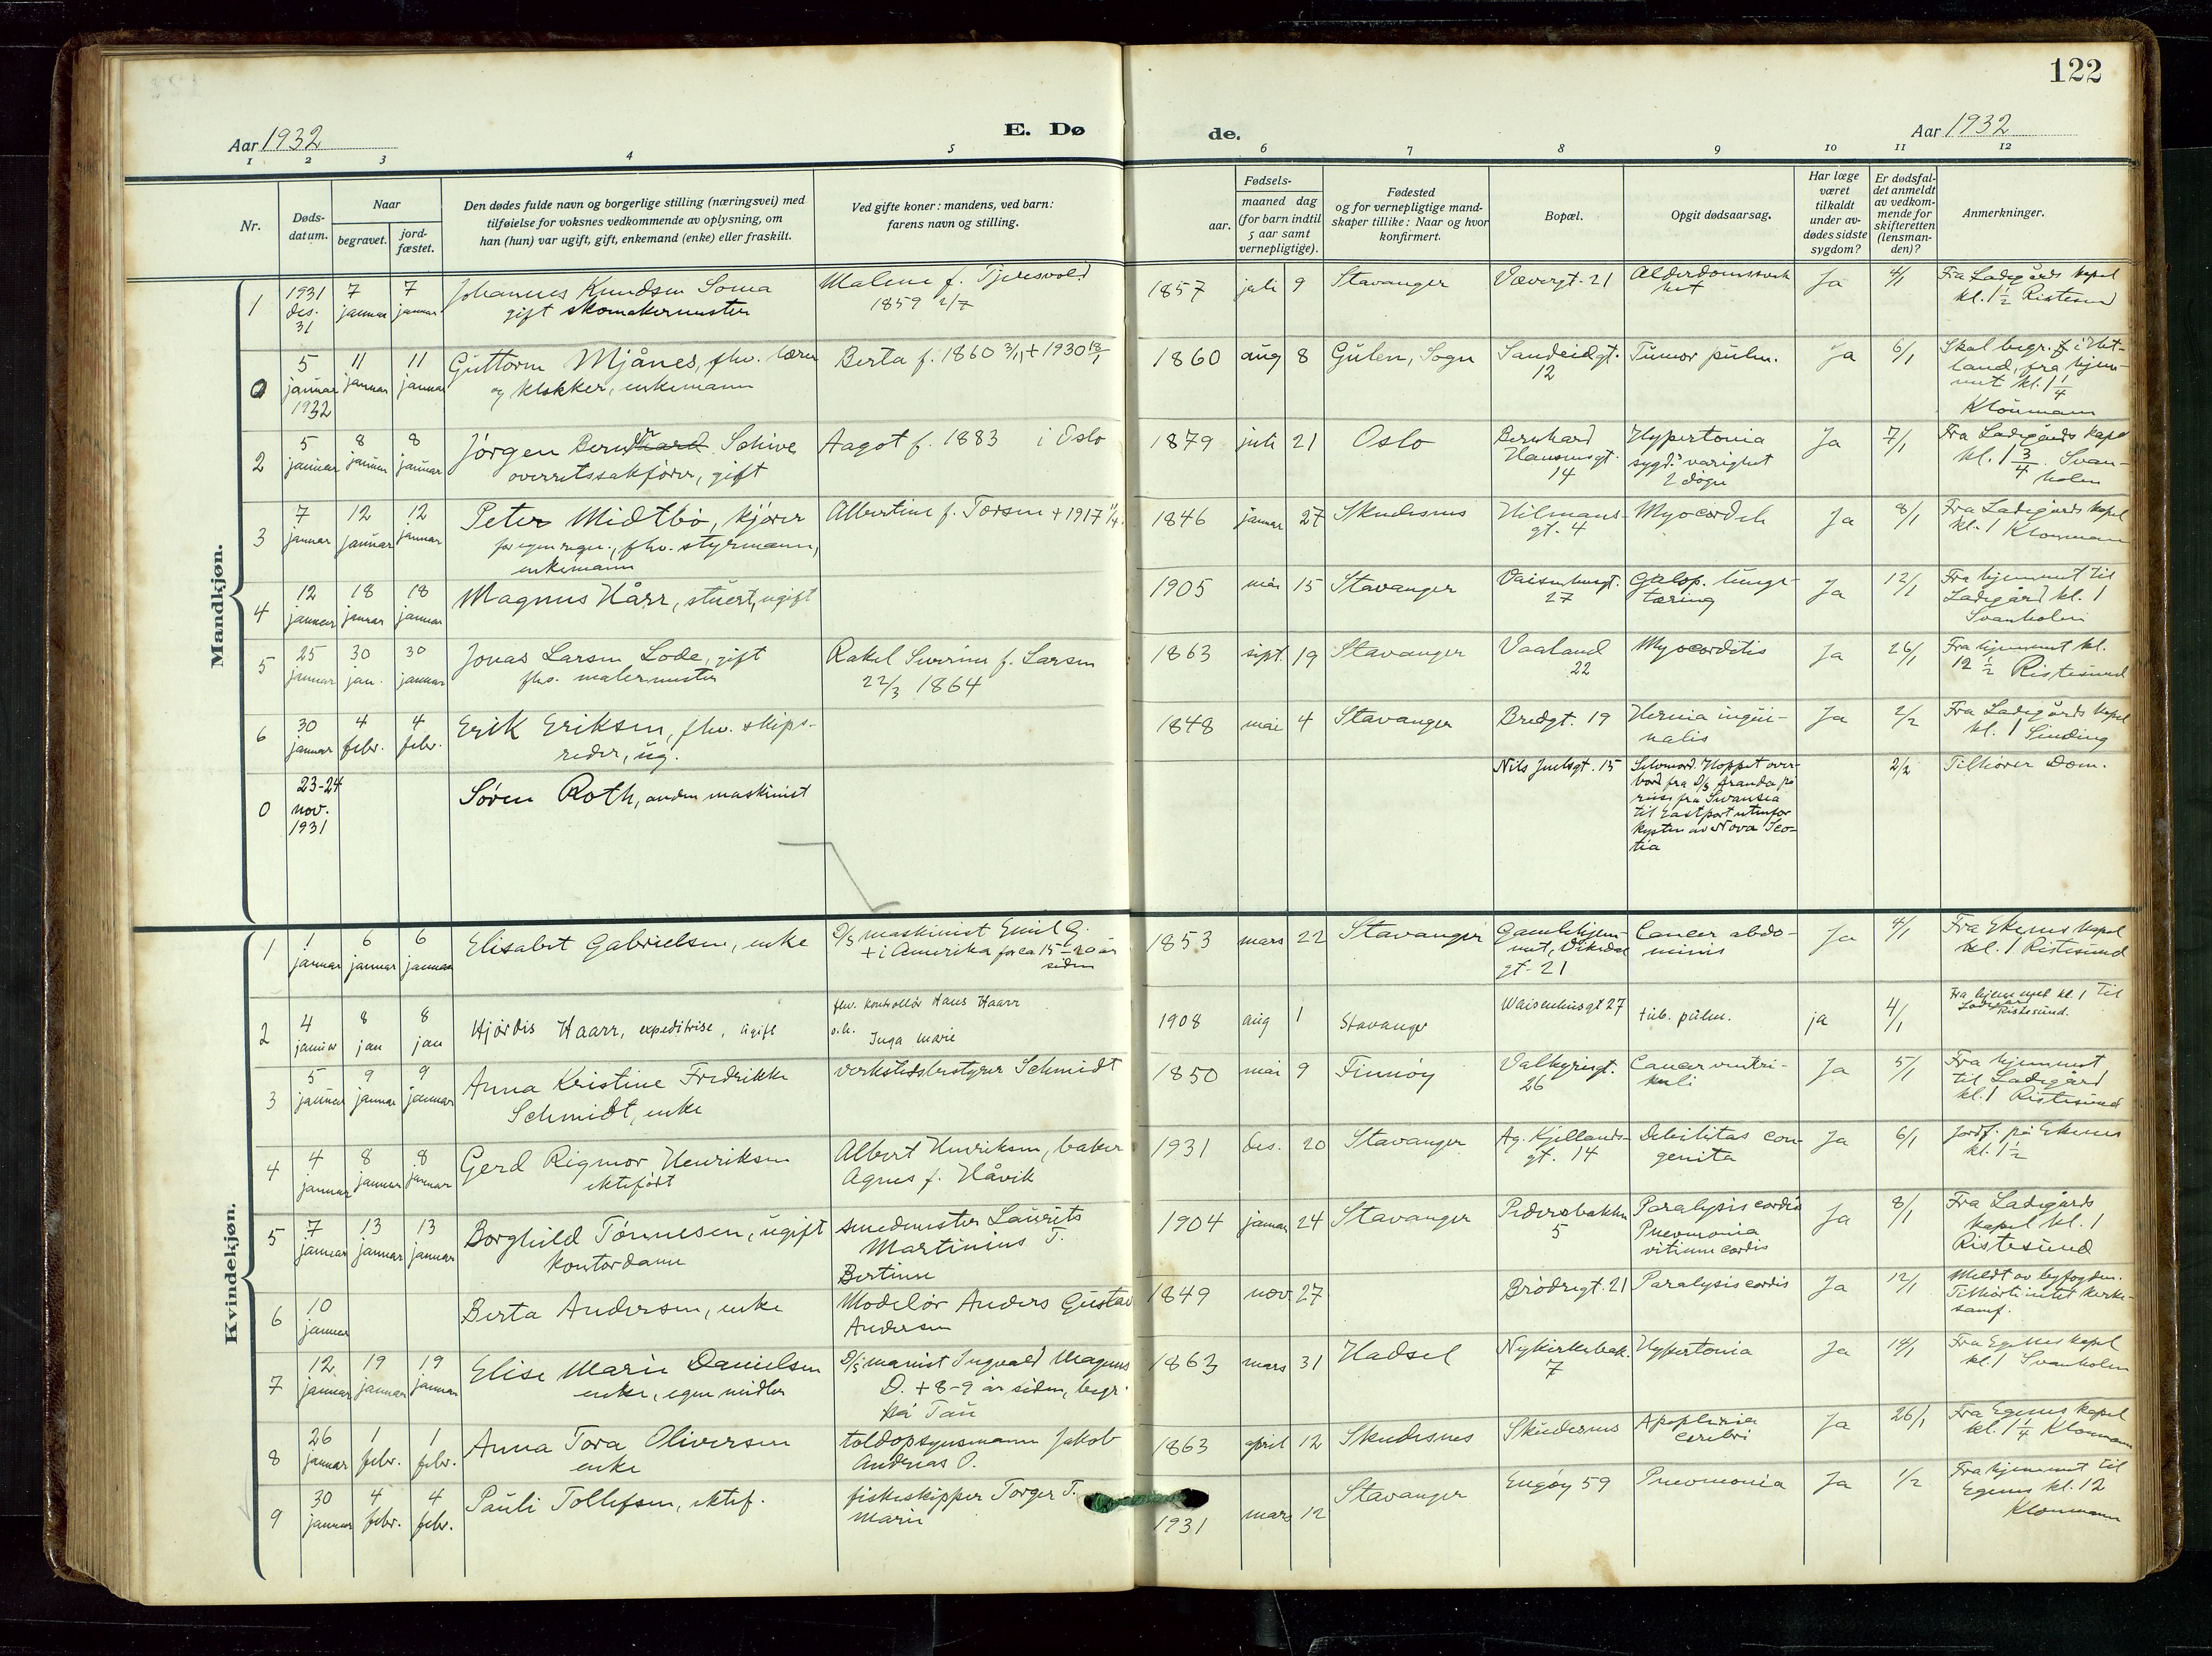 122
Aar 1932
E. Dø
de.
Aar 1932
1 2 3 4 5 6 7 8 9 10 11 12
Nr.
Døds-
datum.
Naar
begravet.
jord-
fæstet.
Den dødes fulde navn og borgerlige stilling (næringsvei) med
tilføielse for voksnes vedkommende av oplysning, om
han (hun) var ugift, gift, enkemand (enke) eller fraskilt.
Ved gifte koner: mandens, ved barn:
farens navn og stilling.
Fødsels-
aar.
maaned dag
(for barn indtil
5 aar samt
vernepligtige).
Fødested
og for vernepligtige mand-
skaper tillike: Naar og hvor
konfirmert.
Bopæl.
Opgit dødsaarsag.
Har læge
været
tilkaldt
under av-
dødes sidste
sygdom?
Er dødsfal-
det anmeldt
av vedkom-
mende for
skifteretten
(lensman-
den)?
Anmerkninger.
Mandkjøn.
1
1931
des.
31
7
januar
7
januar
Johannes Knudsen Soma
gift skomakermester
Malene f. Tjeresvold
1859 2/7
1857 juli 9 Stavanger
Vævergt. 21
Alderdomssvak
het
Ja
4/1
Fra Ladegårds kapel
kl. 1 1/2 Ristesund
0
5
januar
1932
11
januar
11
januar
Guttorm Mjånes, fhv. lærer
og klokker, enkemann
Berta f. 1860 3/11 + 1930 18/1
1860 aug 8 Gulen, Sogn
Sandeidgt.
12
Tumor pulm.
Ja
6/1
Skal begr. i Het-
land, fra hjem-
met kl. 1 1/4
Kloumann
2
5
januar
8
januar
8
januar
Jørgen Bernhard Schive
overretssakfører, gift
Aagot f. 1883 i Oslo
1879 juli 21 Oslo
Bernhard
Hansensgt.
14
Hypertonia
sygd.s varighet
2 døgn
Ja
7/1
Fra Ladegårds kapel
kl. 1 3/4. Svan-
holm
3
7
januar
12
januar
12
januar
Peter Midtbø, kjører
for egen regn., fhv. styrmann,
enkemann
Albertine f. Torsen + 1917
1846 januar 27 Skudesnes
Hilmans-
gt. 4
Myocardeli
Ja
8/1
Fra Ladegårds kapel
kl. 1 Kloumann
4
12
januar
18
januar
18
januar
Magnus Hårr, stuert, ugift
1905 mai 15 Stavanger
Vaisenhusgt.
27
Galop. lunge-
tæring
Ja
12/1
Fra hjemmet til
Ladegård kl. 1
Svanholm
5
25
januar
30
jan.
30
januar
Jonas Larsen Lode, gift
fhv. malermester
Rakel Severine f. Larsen
22/3 1864
1863 sept. 19 Stavanger
Vaaland
22
Myocarditis
Ja
26/1
Fra hjemmet kl.
12 1/2 Ristesund
6
30
januar
4
febr.
4
febr.
Erik Eriksen, fhv. skips-
reder, ug.
1848 mai 4 Stavanger
Bredgt. 19
Hernia ingui-
nalis
Ja
2/2
Fra Ladegårds kapel
kl. 1 Sinding
0
23-24
nov.
1931
Søren Roth, anden maskinist
Nils Juelsgt. 15
Selvmord. Hoppet over-
bord fra D/S Aranda på
reise fra Swansea
til Eastport utenfor
kysten av Nova Sco-
tia
2/2
Tilhører Dom.
Kvindekjøn.
1
1
januar
6
januar
6
januar
Elisabet Gabrielsen, enke
D/S maskinist Emil G.
+ i Amerika for ca 15-20 år
siden
1853 mars 22 Stavanger
Gamlehjem-
met, Vikedal
gt. 21
Cancer abdo-
minis
Ja
4/1
Fra Ekenes kapel
kl. 1 Ristesund
2
4
januar
8
jan
8
jan
Hjørdis Haarr, expeditrise, ugift
fhv. kontrollør Hans Haarr
o.h.
Inga Marie
1908 aug 1 Stavanger
Waisenhusgt 27
tub. pulm.
ja
4/1
Fra hjemmet kl. 1 til
Ladegård
Ristesund.
3
5
januar
9
januar
9
januar
Anna Kristine Fredrikke
Schmidt, enke
verkstedsbestyrer Schmidt
1850 mai 9 Finnøy
Valkyriegt.
26
Cancer ventri-
kuli
Ja
5/1
Fra hjemmet
til Ladegård
kl. 1 Ristesund
4
4
januar
8
januar
8
januar
Gerd Rigmor Henriksen
ektefødt
Albert Henriksen, baker
Agnes f. Håvik
1931 des. 20 Stavanger
Ag. Kjellands-
gt. 14
Debilitas con-
genita
Ja
6/1
Jordf. på Ekenes
kl. 1 1/2
5
7
januar
13
januar
13
januar
Borghild Tønnesen, ugift
kontordame
smedmester Laurits
Martinius T.
Bertine
1904 januar 24 Stavanger
Pedersbakken
5
Paralysis cordis
Pneumonia
vitium cordis
Ja
8/1
Fra Ladegårds
kapel kl. 1
Ristesund
6
10
januar
Berta Andersen, enke
Modelør Anders Gustav
Andersen
1849 nov. 27
Brødregt. 21
Paralysis cordis
Ja
12/1
Meldt av byfogden.
Tilhørte intet kirke-
samf.
7
12
januar
19
januar
19
januar
Elise Marie Danielsen
enke, egne midler
D/S manist Ingvald Magnus
D. + 8-9 år siden, begr.
på Tau
1863 mars 31 Hadsel
Nykirkebak.
7
Hypertonia
Ja
14/1
Fra Egenes kapel
kl. 1 Svanholm
8
26
januar
1
febr.
1
febr.
Anna Tora Oliversen
enke
toldopsynsmann Jakob
Andreas O.
1863 april 12 Skudesnes
Skudesnes
Apoplexia
cerebri
Ja
26/1
Fra Egenes kapel
kl. 1 1/4 Kloumann
9
30
januar
4
febr.
4
febr.
Pauli Tollefsen, ektef.
fiskeskipper Torger T.
Marie
1931 mars 12 Stavanger
Engøy 59
Pneumonia
Ja
1/2
Fra hjemmet til
Egenes kl. 12
Kloumann